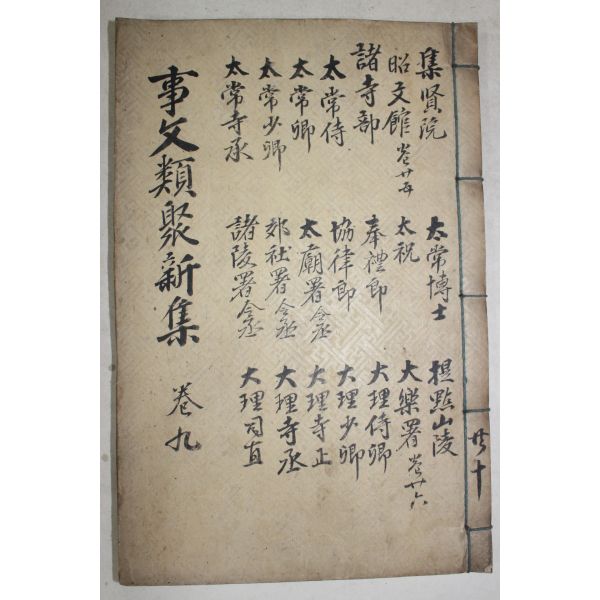 集賢院
昭文館 卷廿五
諸寺部
太常侍
太常卿
太常少卿
太常寺承
太常博士
太祝
奉禮郎
協律郎
太廟署令丞
郊社署令丞
諸陵署令丞
提點山陵
大樂署 卷廿六
大理侍卿
大理少卿
大理寺正
大理寺丞
大理司直
事文類聚新集 卷九